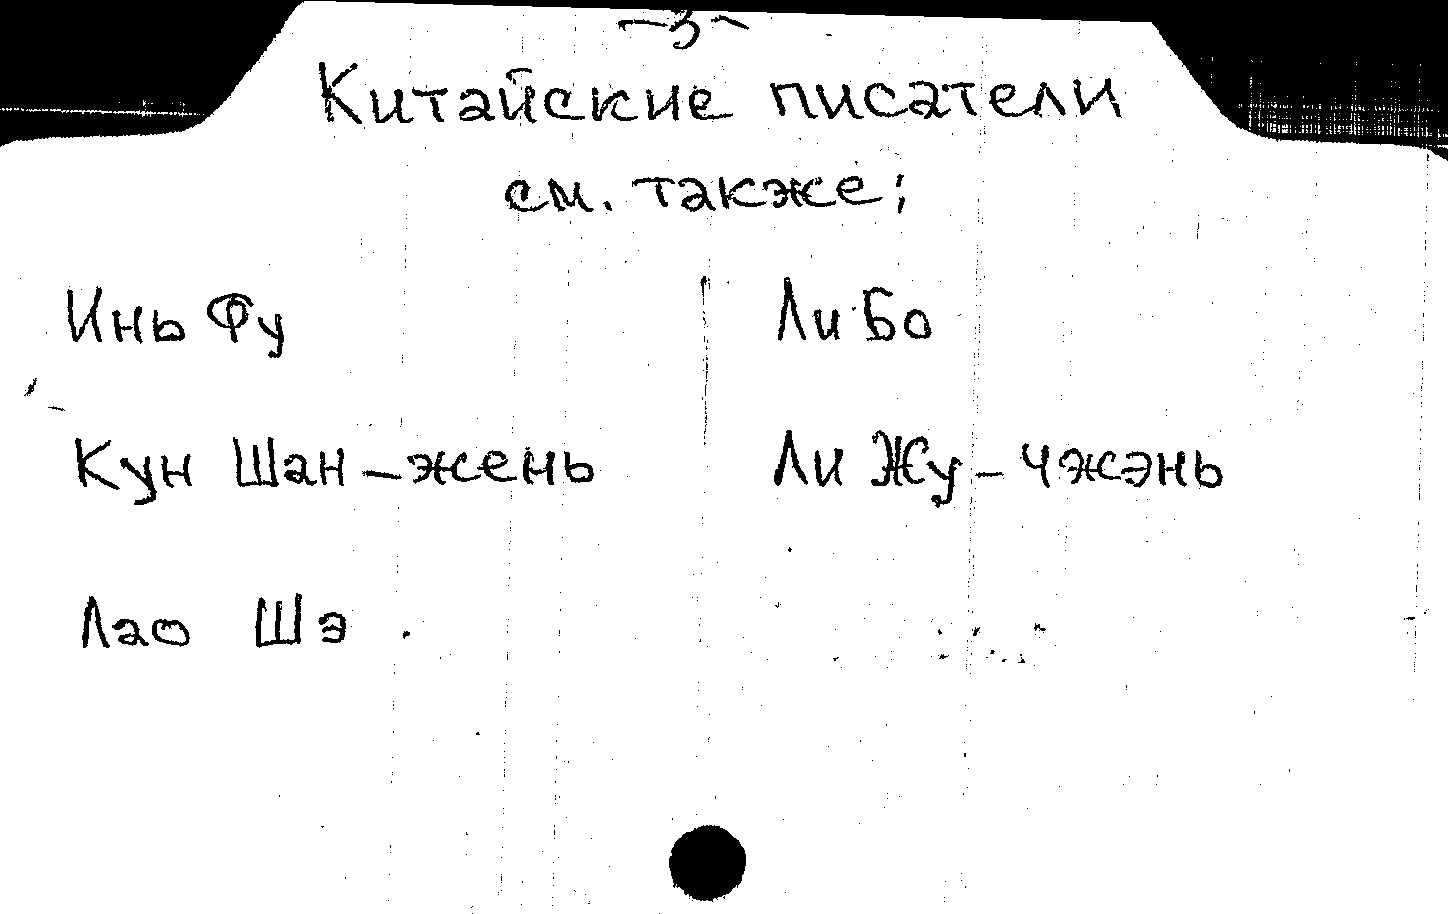 —3—
Китайские писатели
см. также:
Инь Фу
Кун Шан-жень
Лао Шэ
Ли Бо
Ли Жу-чжэнь